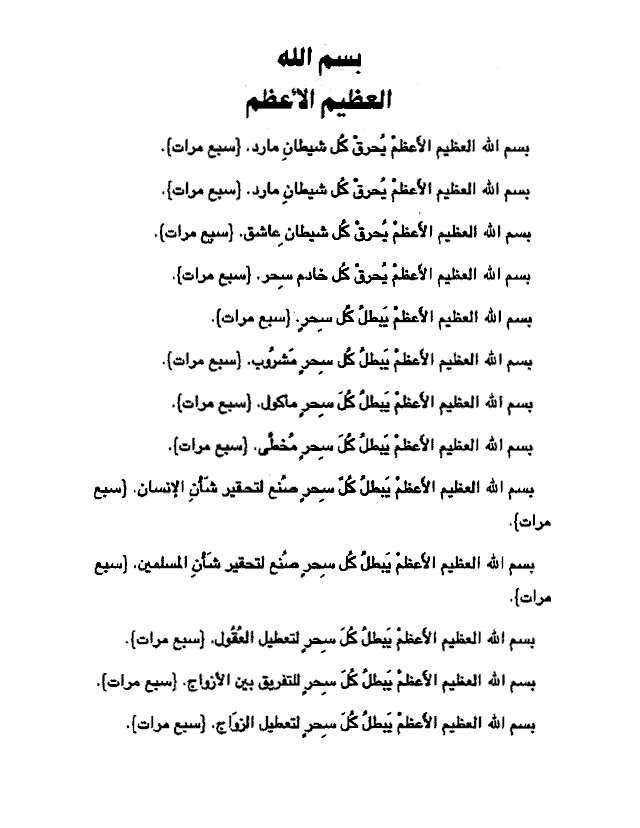 بسم الله
العظيم الأعظم
بسم الله العظيم الأَعظمْ يُحرقْ كُل شيطانِ مارد. {سبع مرات}.
بسم الله العظيم الأَعظمْ يُحرقْ كُل شيطانِ مارد. {سبع مرات}.
بسم الله العظيم الأَعظمْ يُحرقْ كُل شيطانِ عاشق. {سبع مرات}.
بسم الله العظيم الأَعظمْ يُحرقْ كُل خادم سحر. {سبع مرات}.
بسم الله العظيم الأَعظمْ يَبطلُ كُل سحرٍ. {سبع مرات}.
بسم الله العظيم الأَعظمْ يَبطلُ كُل سحرٍ مَشرُوب. {سبع مرات}.
بسم الله العظيم الأَعظمْ يَبطلُ كُلَ سحرٍ ماكول. {سبع مرات}.
بسم الله العظيم الأَعظمْ يَبطلُ كُلَ سحرٍ مُخطُى. {سبع مرات}.
بسم الله العظيم الأَعظمْ يَبطلُ كُلَ سحرٍ صنُع لتحقير شَأنِ الإنسان. {سبع
مرات}.
بسم الله العظيم الأَعظمْ يَبطلُ كُل سحرٍ صنُع لتحقير شَأنِ المسلمين. {سبع
مرات}.
بسم الله العظيم الأَعظمْ يَبطلُ كُلَ سحرٍ لتعطيل العُقُول. {سبع مرات}.
بسم الله العظيم الأَعظمْ يَبطلُ كُلَ سحرٍ للتفريق بين الأزواج. {سبع مرات}.
بسم الله العظيم الأَعظمْ يَبطلُ كُلَ سحرٍ لتعطيل الزوَاج. {سبع مرات}.